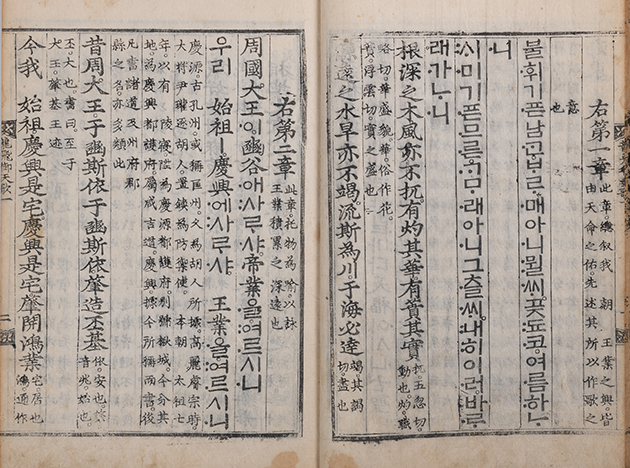 右第一章
此章。緫叙我 朝 王業之興。皆
由天命之佑。先述其所以作歌之
意
也
불휘기픈남ᄀᆞᆫ。ᄇᆞᄅᆞ매아니뮐ᄊᆡ。곶됴코。여름하ᄂᆞ
니
ᄉᆡ미기픈므른。ᄀᆞᄆᆞ래아니그츨ᄊᆡ。내히이러。바ᄅᆞ
래가ᄂᆞ니
根深之木。風亦不扤。有灼其華。有蕡其實
扤。五忽切。
動也。灼。職
略切。華盛貌。華。俗作花。
蕡。浮雲切。實之盛也
源遠之水。旱亦不竭。流斯爲川。于海必達
竭。其謁
切。盡也
右第二章
此章。托物爲喻。以詠
王業積累之深遠也
周國大王이。豳谷애사ᄅᆞ샤。帝業을여르시니
우리 始祖ㅣ慶興에사ᄅᆞ샤。 王業을여르시니
慶源古孔州。或稱匡州。久爲胡人所據。高麗睿宗時。
大將尹瓘逐胡人。置鎮爲防禦使。 本朝 太祖七
年。以有 陵寢。陞爲慶源都護府。割鏡城。今分其
地。爲慶興都護府。屬咸吉道。慶興。據今所稱而書。後
凡書諸道及州府郡
縣之名。亦多類此
昔周大王。于豳斯依。于豳斯依。肇造丕基
依。安也。肇。
音兆。始也。
丕。大也。書曰。至于
大王。肇基王迹
今我 始祖。慶興是宅。慶興是宅。肇開鴻業
宅。居也。
鴻。通作
龍飛御天歌一
二